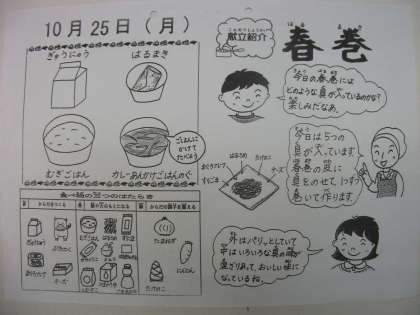 10月25日(月)
ぎゅうにゅう
はるまき
むぎごはん
カレーあんかけごはんのぐ
ごはんに
かけて
たべよう
食べ物の三つのはたらき
からだをつくる
熱や力のもとになる
からだの調子を整える
ぎゅうにゅう
たまねぎ
にんじん
チーズ
たけのこ
こんだてしょうかい
献立紹介
はる まき
春巻
今日の春巻には
どのような具が入っているのかな?
楽しみだなあ。
はるさめ
たけのこ
まぐろフレーク
チーズ
すりごま
今日は5つの
具が入っています。
春巻の皮に
具をのせて、1つずつ
巻いて作ります。
外はパリッとしていて
中はいろいろな具の味が
混ざりあって、おいしい味に
なっているね。